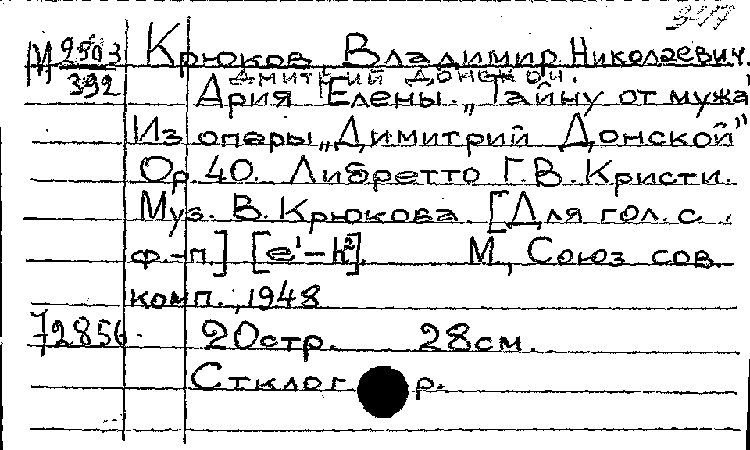 947
М 2503 Крюков Владимир Николаевич.
392 Дмитрий Донской.
Ария Елены. „Тайну от мужа"
Из оперы „Димитрий Донской"
Ор. 40. Либретто Г.В. Кристи.
Муз. В. Крюкова. [Для гол. с.
ф.-п.] [e¹-h²]. М., Союз сов.
комп., 1948
72856. 20стр. 28см.
Стклогр.